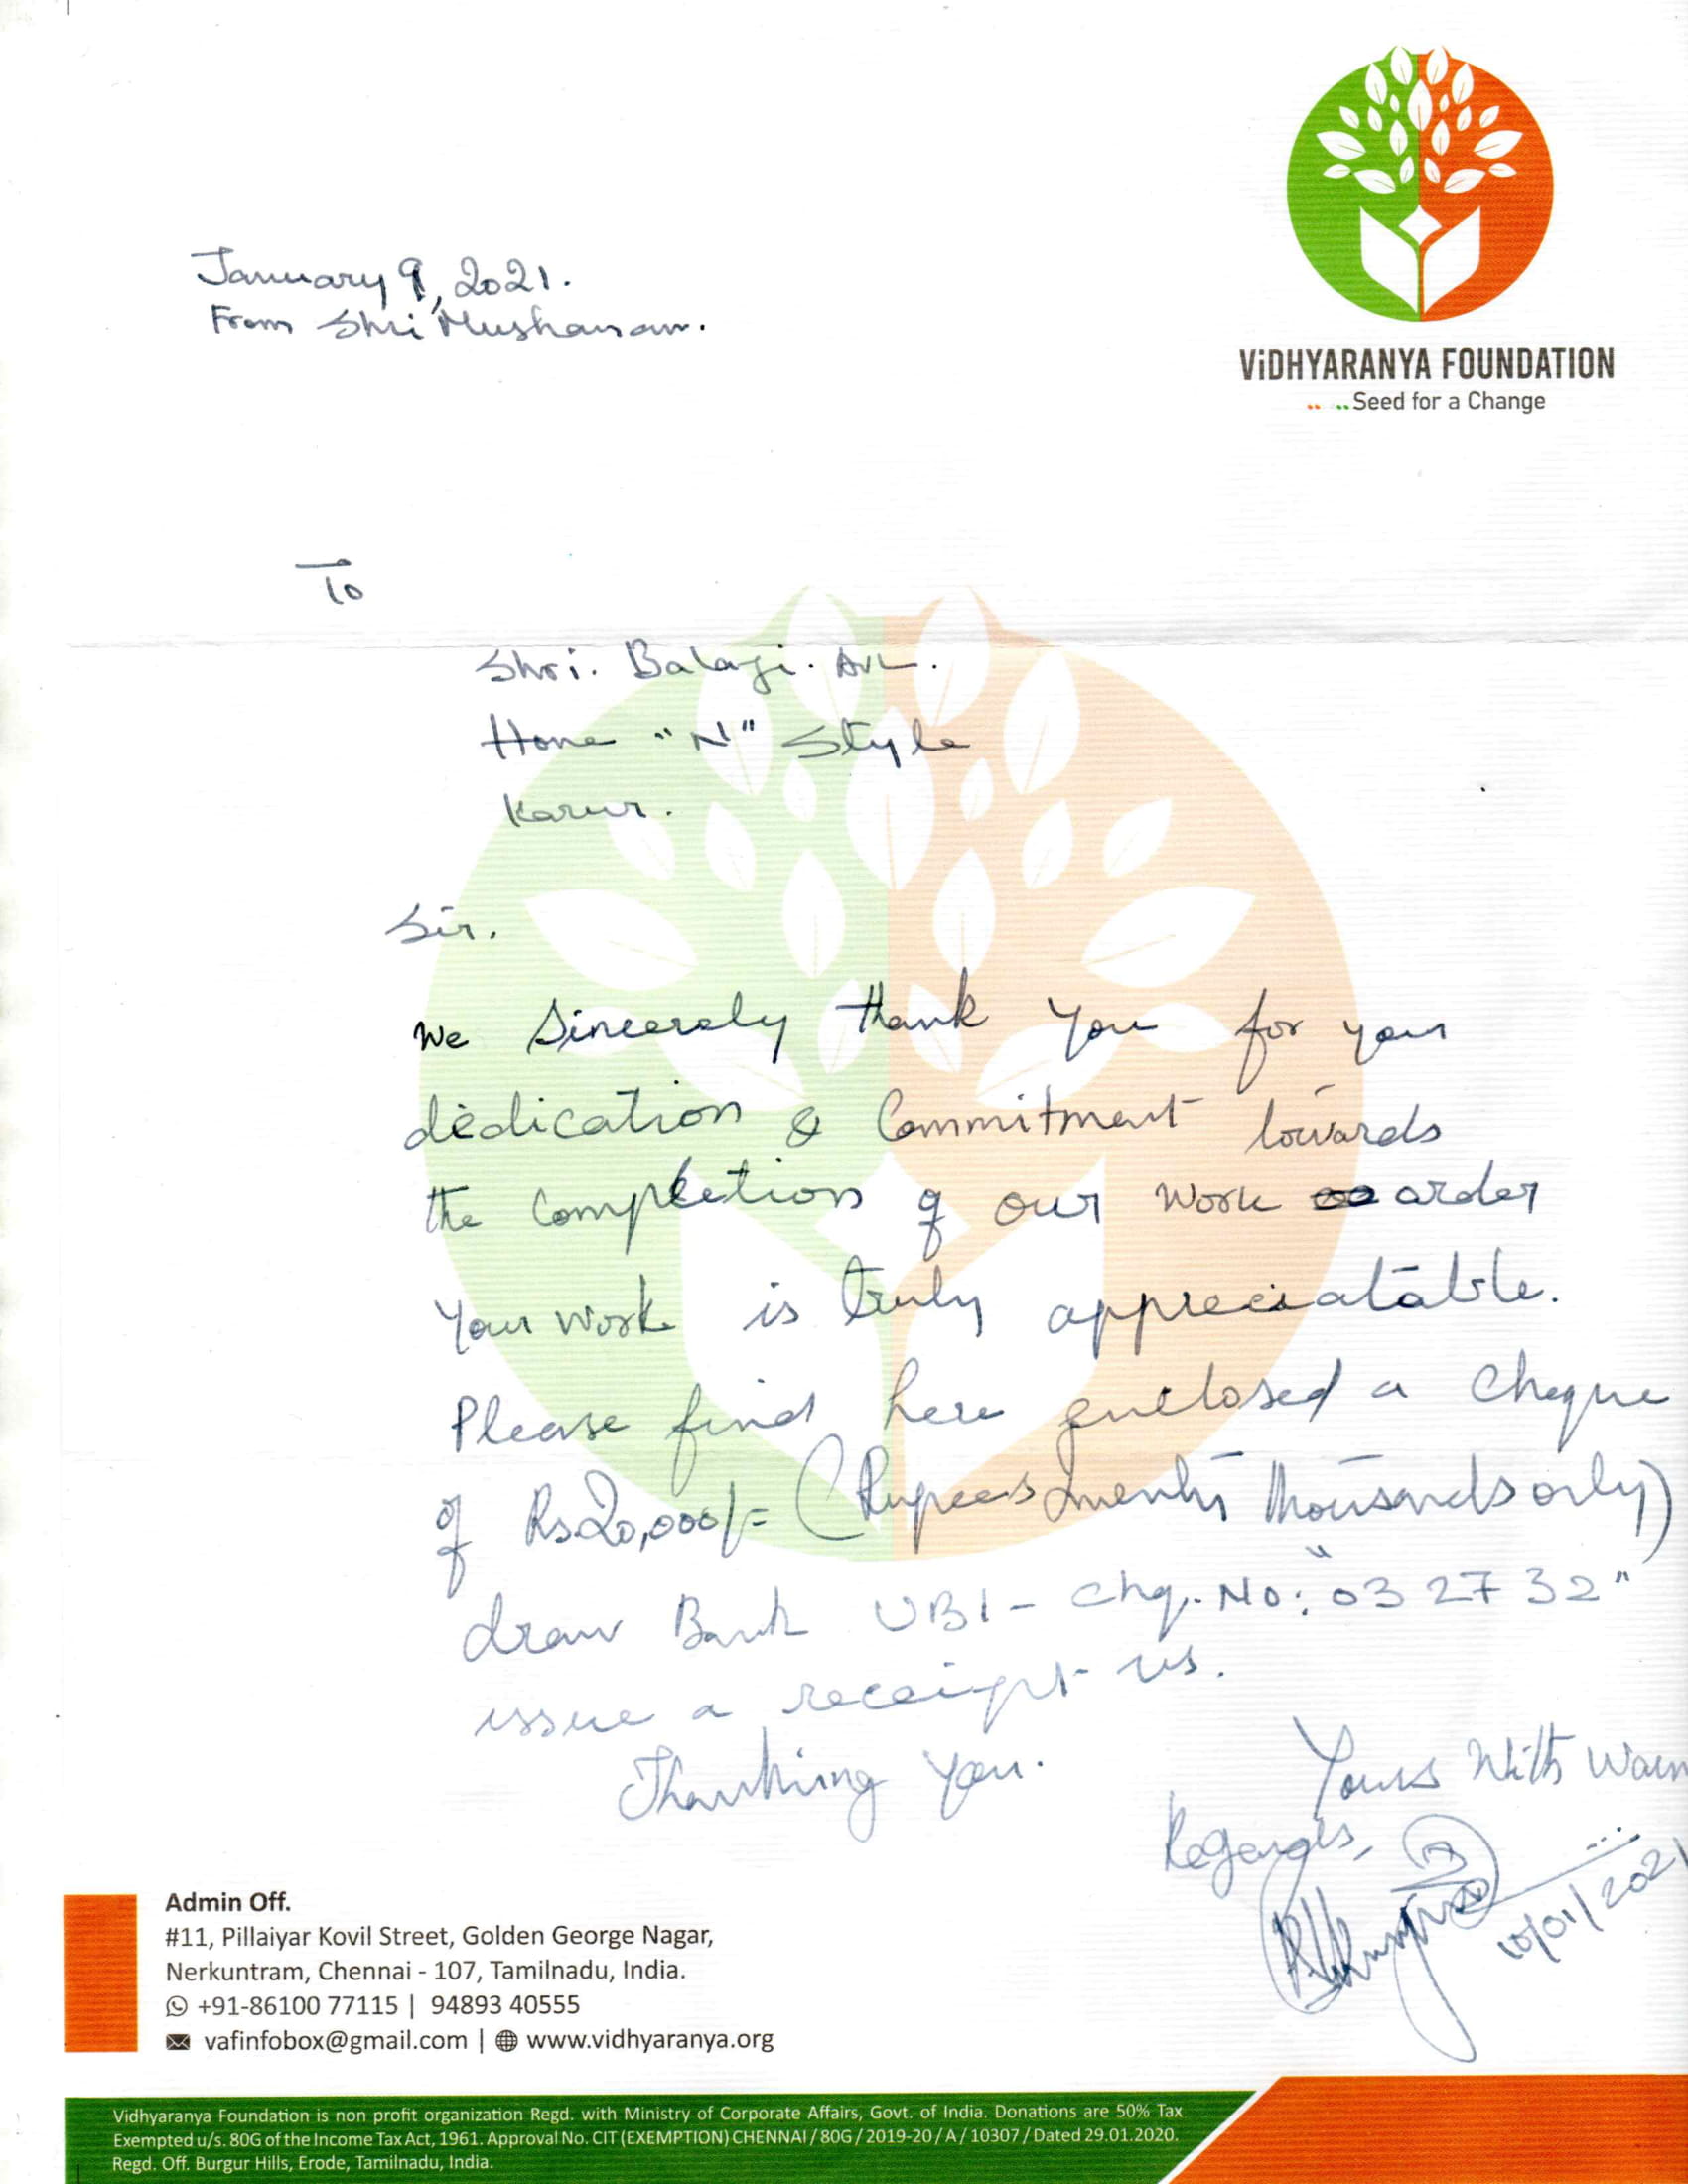 ViDHYARANYA FOUNDATION
.. ..Seed for a Change
January 9, 2021.
From Shri Mushanam.
To
Shri. Balaji. AVL.
Home "N" Style
Karur.
Sir.
We Sincerely thank you for your
dedication & Commitment towards
the Completion of our work order
your work is truly appreciatable.
Please find here enclosed a Cheque
of Rs.20,000/= (Rupees Twenty Thousands only)
draw Bank UBI - chq. No: "032732"
issue a receipt us.
Thanking you.
Yours With Warm
Regards,
10/01/2021
Admin Off.
#11, Pillaiyar Kovil Street, Golden George Nagar,
Nerkuntram, Chennai - 107, Tamilnadu, India.
+91-86100 77115 | 94893 40555
vafinfobox@gmail.com | www.vidhyaranya.org
Vidhyaranya Foundation is non profit organization Regd. with Ministry of Corporate Affairs, Govt. of India. Donations are 50% Tax
Exempted u/s. 80G of the Income Tax Act, 1961. Approval No. CIT (EXEMPTION) CHENNAI / 80G / 2019-20 / A / 10307 / Dated 29.01.2020.
Regd. Off. Burgur Hills, Erode, Tamilnadu, India.